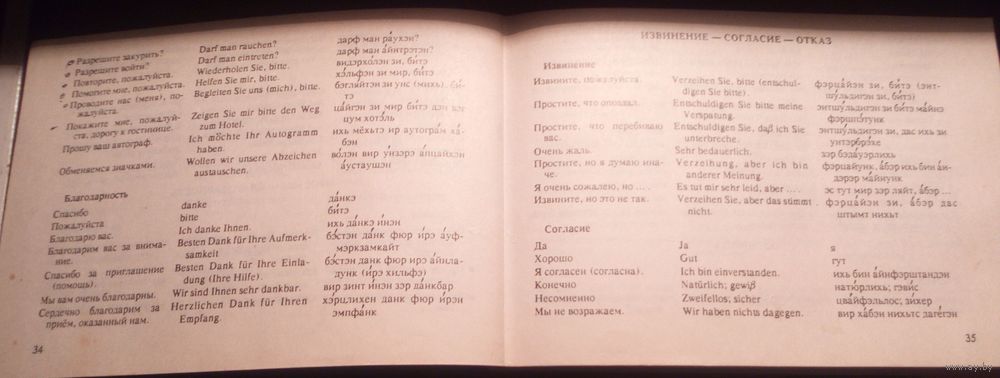 Разрешите закурить? Darf man rauchen? дарф ман ра́ухэн?
Разрешите войти? Darf man eintreten? дарф ман а́йнтрэтэн?
Повторите, пожалуйста. Wiederholen Sie, bitte. видэрхо́лэн зи, би́тэ
Помогите мне, пожалуйста. Helfen Sie mir, bitte. хэ́льфэн зи мир, би́тэ
Проводите нас (меня), по- Begleiten Sie uns (mich), bitte. бэгля́йтэн зи унс (михь), би́-
жалуйста. тэ
Покажите мне, пожалуй- Zeigen Sie mir bitte den Weg ца́йгэн зи мир би́тэ дэн вэг
ста, дорогу к гостинице. zum Hotel. цум хотэ́ль
Прошу ваш автограф. Ich möchte Ihr Autogramm ихь мёхьтэ ир аутогра́м ха́-
haben. бэн
Обменяемся значками. Wollen wir unsere Abzeichen во́лэн вир у́нзэрэ а́пцайхэн
austauschen. а́устаушэн
Благодарность
Спасибо danke да́нкэ
Пожалуйста bitte би́тэ
Благодарю вас. Ich danke Ihnen. ихь да́нкэ и́нэн
Благодарим вас за внима- Besten Dank für Ihre Aufmerk- бэ́стэн данк фюр и́рэ а́уф-
ние. samkeit мэркзамкайт
Спасибо за приглашение Besten Dank für Ihre Einla- бэ́стэн данк фюр и́рэ а́йнла-
(помощь). dung (Ihre Hilfe). дунк (и́рэ хильфэ)
Мы вам очень благодарны. Wir sind Ihnen sehr dankbar. вир зинт и́нэн зэр да́нкбар
Сердечно благодарим за Herzlichen Dank für Ihren хэ́рцлихен данк фюр и́рэн
приём, оказанный нам. Empfang. эмпфа́нк
34
ИЗВИНЕНИЕ — СОГЛАСИЕ — ОТКАЗ
Извинение
Извините, пожалуйста. Verzeihen Sie, bitte (entschul- фэрца́йэн зи, би́тэ (энт-
digen Sie bitte). шу́льдигэн зи, би́тэ)
Простите, что опоздал. Entschuldigen Sie bitte meine энтшу́льдигэн зи би́тэ ма́йнэ
Verspatung. фэршпэ́тунк
Простите, что перебиваю Entschuldigen Sie, daß ich Sie энтшу́льдигэн зи, дас ихь зи
вас. unterbreche. унтэрбрэ́хе
Очень жаль. Sehr bedauerlich. зэр бэда́уэрлихь
Простите, но я думаю ина- Verzeihung, aber ich bin фэрца́йунк, а́бэр ихь бин а́н-
че. anderer Meinung. дэрэр ма́йнунк
Я очень сожалею, но .... Es tut mir sehr leid, aber .... эс тут мир зэр ляйт, а́бэр ...
Извините, но это не так. Verzeihen Sie, aber das stimmt фэрца́йэн зи, а́бэр дас
nicht. штымт нихьт
Согласие
Да Ja я
Хорошо Gut гут
Я согласен (согласна). Ich bin einverstanden. ихь бин а́йнфэрштандэн
Конечно Natürlich; gewiß натю́рлихь; гэви́с
Несомненно Zweifellos; sicher цва́йфэльлос; зи́хер
Мы не возражаем. Wir haben nichts dagegen. вир ха́бэн нихьтс даге́гэн
35
www.ay.by